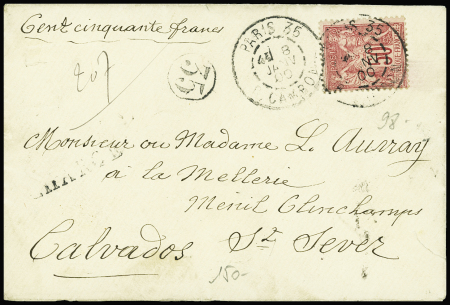 Cent cinquante francs
207
55
PARIS 35
8
JANV
00
R. CAMBON
50
98-
Monsieur ou Madame L. Auvray
à la Mellerie
CHARGÉ
Menil Clinchamps
Calvados St Sever
150-